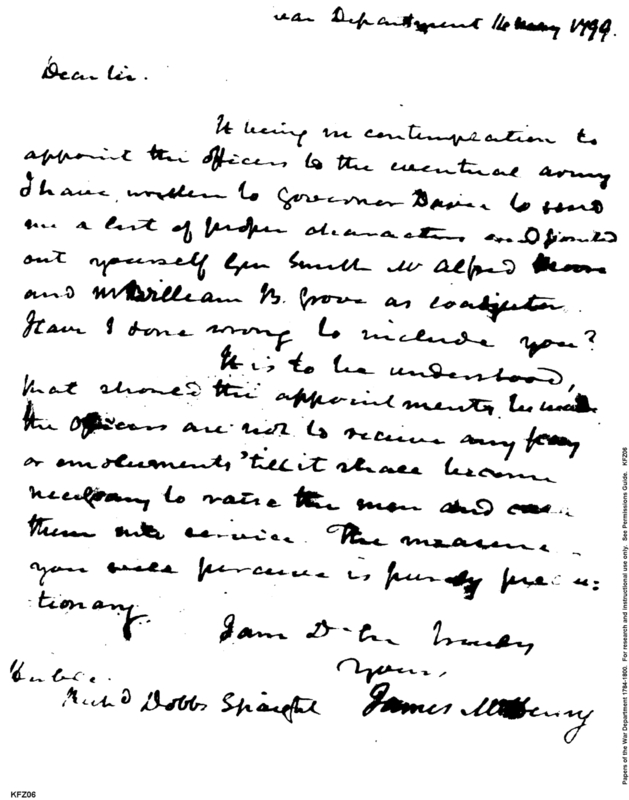 War Department 16 May 1799.
Dear Sir.
It being in contemplation to
appoint the officers to the eventual army
I have written to Governor Davie to send
me a list of proper characters and pointed
out yourself Gen Smith Mr Alfred Moore
and Mr William B. Grove as coadjutor.
Have I done wrong to include you?
It is to be understood,
that should the appointments be made
the officers are not to receive any pay
or emoluments 'till it shall become
necessary to raise the men and call
them into service. The measure
you will perceive is purely precau=
tionary.
I am D Sir truly
Yours,
James McHenry
Richd Dobbs Spaight
KFZ06
Papers of the War Department 1784-1800. For research and instructional use only. See Permissions Guide. KFZ06